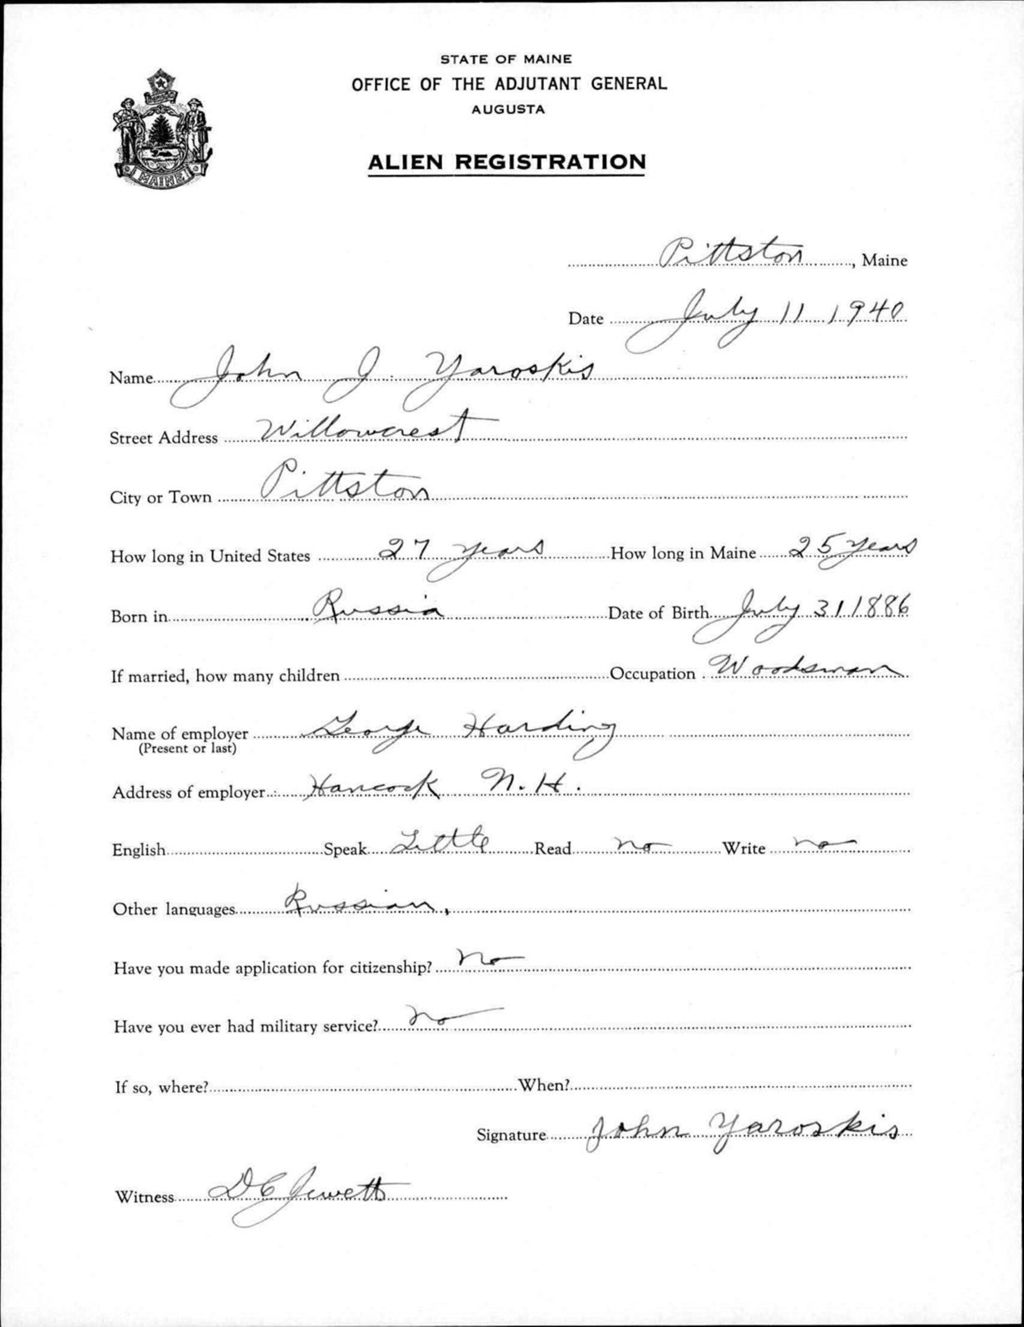 STATE OF MAINE
OFFICE OF THE ADJUTANT GENERAL
AUGUSTA
ALIEN REGISTRATION
MAINE
Pittston, Maine
Date July 11 1940
Name John J. Yaroskis
Street Address Willowcrest
City or Town Pittston
How long in United States 27 years How long in Maine 25 years
Born in Russia Date of Birth July 31 1886
If married, how many children Occupation Woodsman
Name of employer George Harding
(Present or last)
Address of employer Hancock N.H.
English Speak Little Read no Write no
Other languages Russian,
Have you made application for citizenship? no
Have you ever had military service? no
If so, where? When?
Signature John Yaroskis
Witness D E Jewett